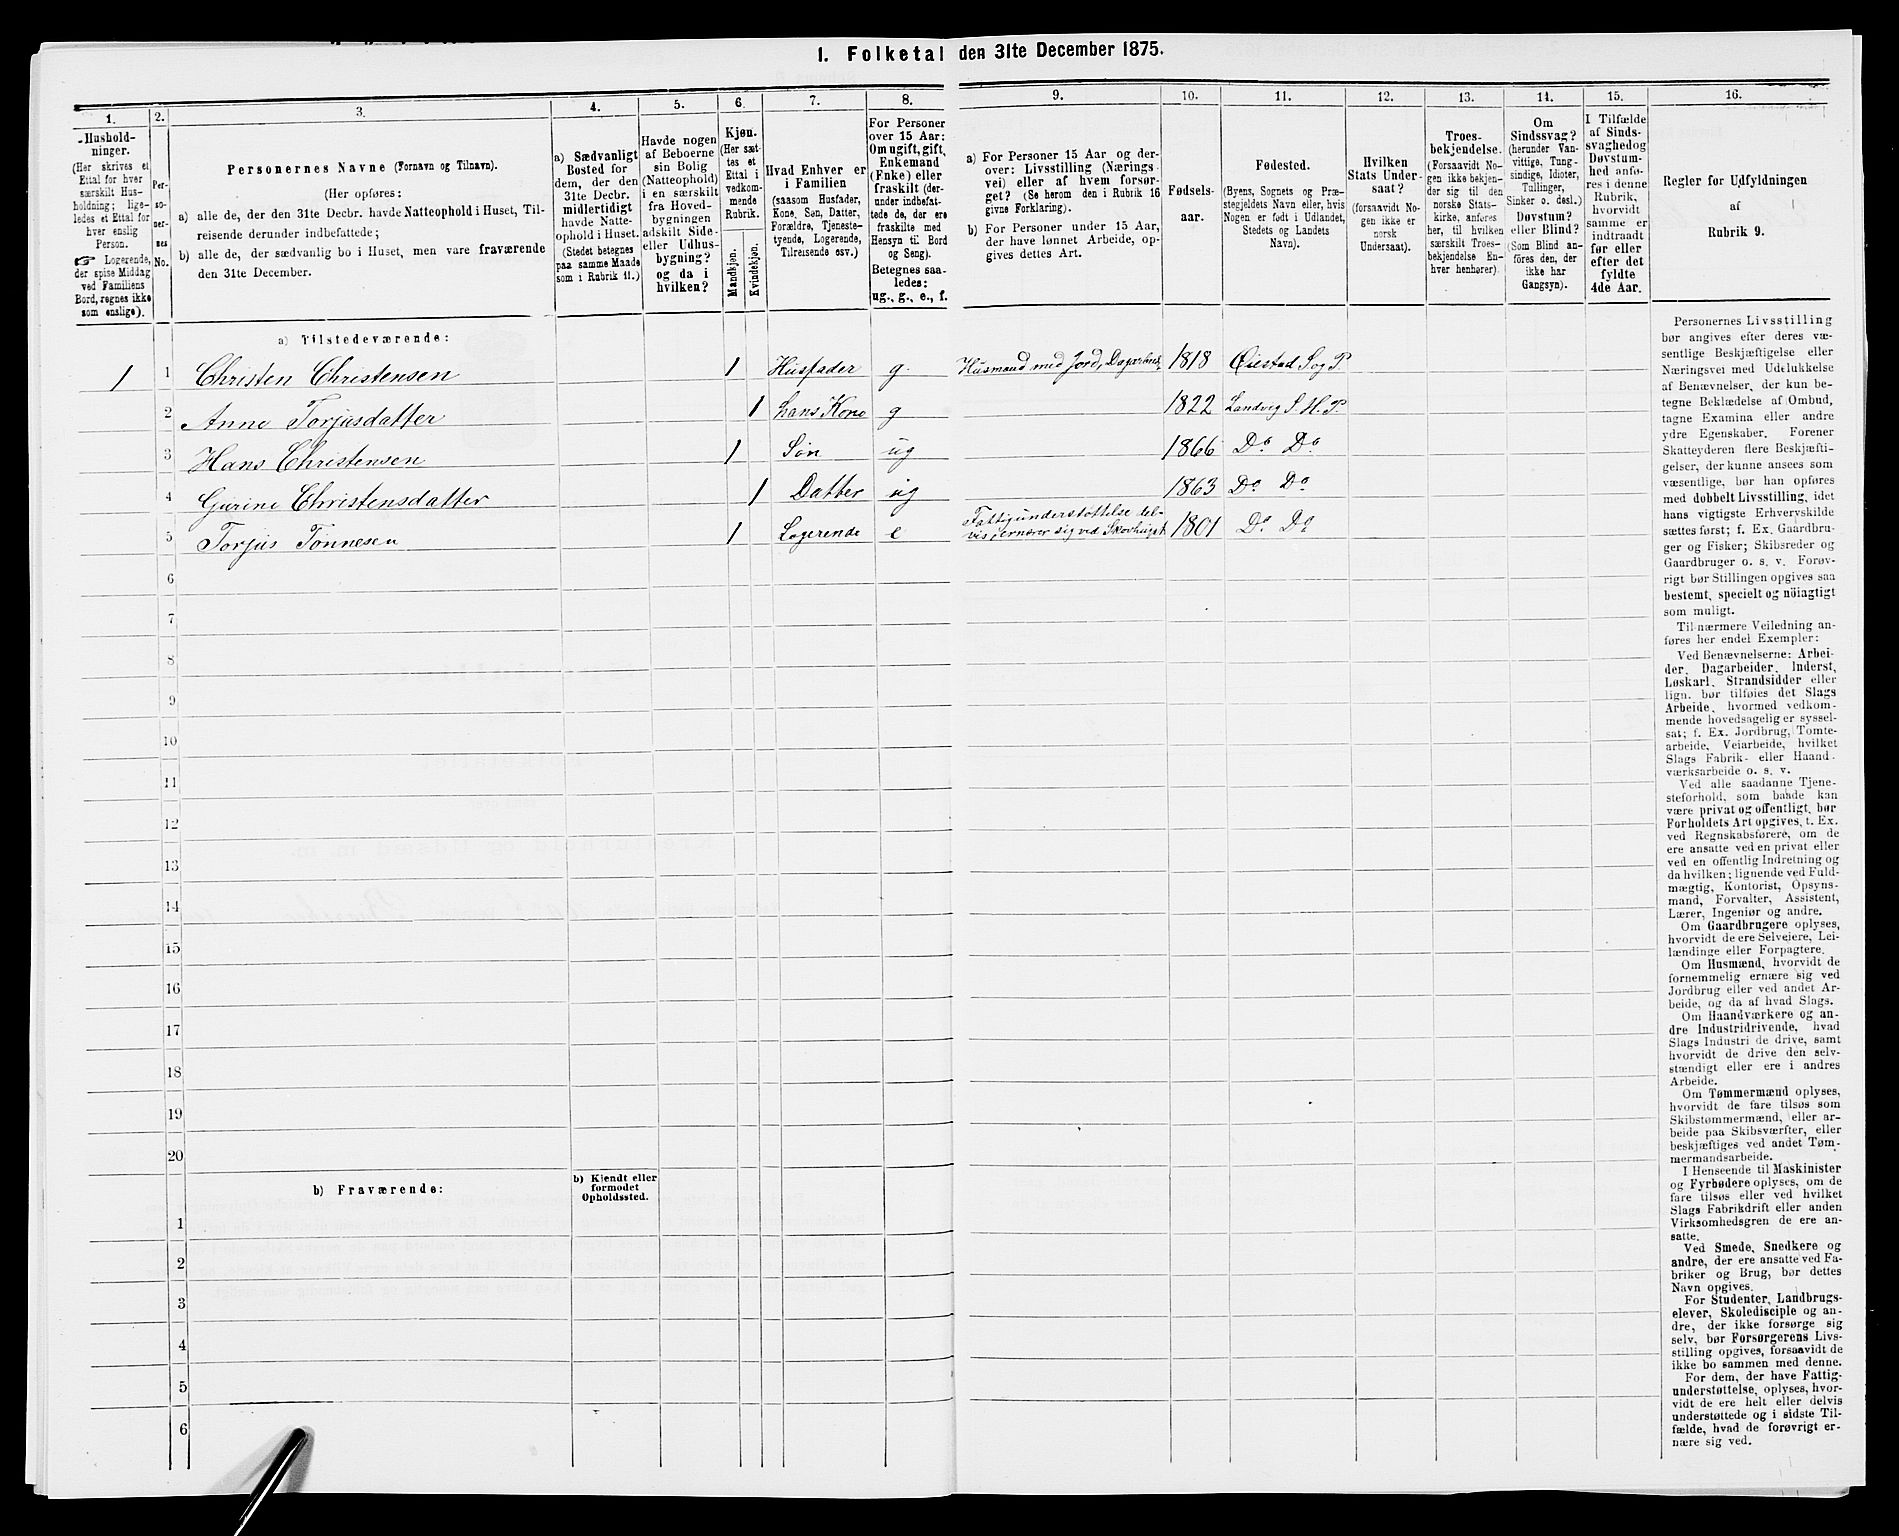 1. Folketal den 31te December 1875.
1.
Hushold-
ninger.
(Her skrives et
Ettal for hver
særskilt Hus-
holdning; lige-
ledes et Ettal for
hver enslig
Person.
Logerende,
der spise Middag
ved Familiens
Bord, regnes ikke
som enslige).
2.
Per-
so-
ner-
nes
No.
3.
Personernes Navne (Fornavn og Tilnavn).
(Her opføres:
a) alle de, der den 31te Decbr. havde Natteophold i Huset, Til-
reisende derunder indbefattede;
b) alle de, der sædvanlig bo i Huset, men vare fraværende
den 31te December.
4.
a) Sædvanligt
Bosted for
dem, der den
31te Decbr.
midlertidigt
havde Natte-
ophold i Huset.
(Stedet betegnes
paa samme Maade
som i Rubrik 11.)
5.
Havde nogen
af Beboerne
sin Bolig
(Natteophold)
i en særskilt
fra Hoved-
bygningen
adskilt Side-
eller Udhus-
bygning?
og da i
hvilken?
6.
Kjøn.
(Her sæt-
tes et
Ettal i
vedkom-
mende
Rubrik.
Mandkjøn.
Kvindekjøn.
7.
Hvad Enhver er
i Familien
(saasom Husfader,
Kone, Søn, Datter,
Forældre, Tjeneste-
tyende, Logerende,
Tilreisende osv.)
8.
For Personer
over 15 Aar:
Om ugift, gift,
Enkemand
(Enke) eller
fraskilt (der-
under indbefat-
tede de, der ere
fraskilte med
Hensyn til Bord
og Seng).
Betegnes saa-
ledes:
ug., g., e., f.
9.
a) For Personer 15 Aar og der-
over: Livsstilling (Nærings-
vei) eller af hvem forsør-
get? (Se herom den i Rubrik 16
givne Forklaring).
b) For Personer under 15 Aar,
der have lønnet Arbeide, op-
gives dettes Art.
10.
Fødsels-
aar.
11.
Fødested.
(Byens, Sognets og Præ-
stegjeldets Navn eller, hvis
Nogen er født i Udlandet,
Stedets og Landets
Navn).
12.
Hvilken
Stats Under-
saat?
(forsaavidt No-
gen ikke er
norsk
Undersaat).
13.
Troes-
bekjendelse.
(Forsaavidt No-
gen ikke bekjen-
der sig til den
norske Stats-
kirke, anføres
her, til hvilken
særskilt Troes-
bekjendelse En-
hver henhører).
14.
Om
Sindssvag?
(herunder Van-
vittige, Tung-
sindige, Idioter,
Tullinger,
Sinker o. desl.)
Døvstum?
eller Blind?
(Som Blind an-
føres den, der
ikke har
Gangsyn).
15.
I Tilfælde
af Sinds-
svaghed og
Døvstum-
hed anfø-
res i denne
Rubrik,
hvorvidt
samme er
indtraadt
før eller
efter det
fyldte
4de Aar.
16.
Regler for Udfyldningen
af
Rubrik 9.
a) Tilstedeværende:
1 1 Christen Christensen 1 Husfader g. Husmand med Jord, 1818 Øiestad S og P.
2 Anne Torjusdatter 1 hans Kone g 1822 Landvig S. H. P.
3 Hans Christensen 1 Søn ug 1866 Do Do
4 Gurine Christensdatter 1 Datter ug 1863 Do Do
5 Torjus Tønnesen 1 Logerende e Fattigunderstøttelse del-
vis, ernærer sig ved Skovhugst 1801 Do Do
6
7
8
9
10
11
12
13
14
15
16
17
18
19
20
b) Fraværende:
b) Kjendt eller
formodet
Opholdssted.
1
2
3
4
5
6
Personernes Livsstilling
bør angives efter deres væ-
sentlige Beskjæftigelse eller
Næringsvei med Udelukkelse
af Benævnelser, der kun be-
tegne Beklædelse af Ombud,
tagne Examina eller andre
ydre Egenskaber. Forener
Skatteyderen flere Beskjæfti-
gelser, der kunne ansees som
væsentlige, bør han opføres
med dobbelt Livsstilling, idet
hans vigtigste Erhvervskilde
sættes først; f. Ex. Gaardbru-
ger og Fisker; Skibsreder og
Gaardbruger o. s. v. Forøv-
rigt bør Stillingen opgives saa
bestemt, specielt og nöiagtigt
som muligt.
Til nærmere Veiledning an-
føres her endel Exempler:
Ved Benævnelserne: Arbei-
der, Dagarbeider, Inderst,
Løskarl, Strandsidder eller
lign. bør tilføies det Slags
Arbeide, hvormed vedkom-
mende hovedsagelig er syssel-
sat; f. Ex. Jordbrug, Tomte-
arbeide, Veiarbeide, hvilket
Slags Fabrik- eller Haand-
værksarbeide o. s. v.
Ved alle saadanne Tjene-
steforhold, som baade kan
være privat og offentligt, bør
Forholdets Art opgives, t. Ex.
ved Regnskabsførere, om de
ere ansatte ved en privat eller
ved en offentlig Indretning og
da hvilken; lignende ved Fuld-
mægtig, Kontorist, Opsyns-
mand, Forvalter, Assistent,
Lærer, Ingeniør og andre.
Om Gaardbrugere oplyses,
hvorvidt de ere Selveiere, Lei-
lændinge eller Forpagtere.
Om Husmænd, hvorvidt de
fornemmelig ernære sig ved
Jordbrug eller ved andet Ar-
beide, og da af hvad Slags.
Om Haandværkere og an-
dre Industridrivende, hvad
Slags Industri de drive, samt
hvorvidt de drive den selv-
stændigt eller ere i andres
Arbeide.
Om Tømmermænd oplyses,
hvorvidt de fare tilsøs som
Skibstømmermænd, eller ar-
beide paa Skibsværfter, eller
beskjæftiges ved andet Tøm-
mermandsarbeide.
I Henseende til Maskinister
og Fyrbødere oplyses, om de
fare tilsøs eller ved hvilket
Slags Fabrikdrift eller anden
Virksomhedsgren de ere an-
satte.
Ved Smede, Snedkere og
andre, der ere ansatte ved Fa-
briker og Brug, bør dettes
Navn opgives.
For Studenter, Landbrugs-
elever, Skoledisciple og an-
dre, der ikke forsørge sig
selv, bør Forsørgerens Livs-
stilling opgives, forsaavidt de
ikke bo sammen med denne.
For dem, der have Fattig-
understøttelse, oplyses, hvor-
vidt de ere helt eller delvis
understøttede og i sidste Til-
fælde, hvad de forøvrigt er-
nære sig ved.